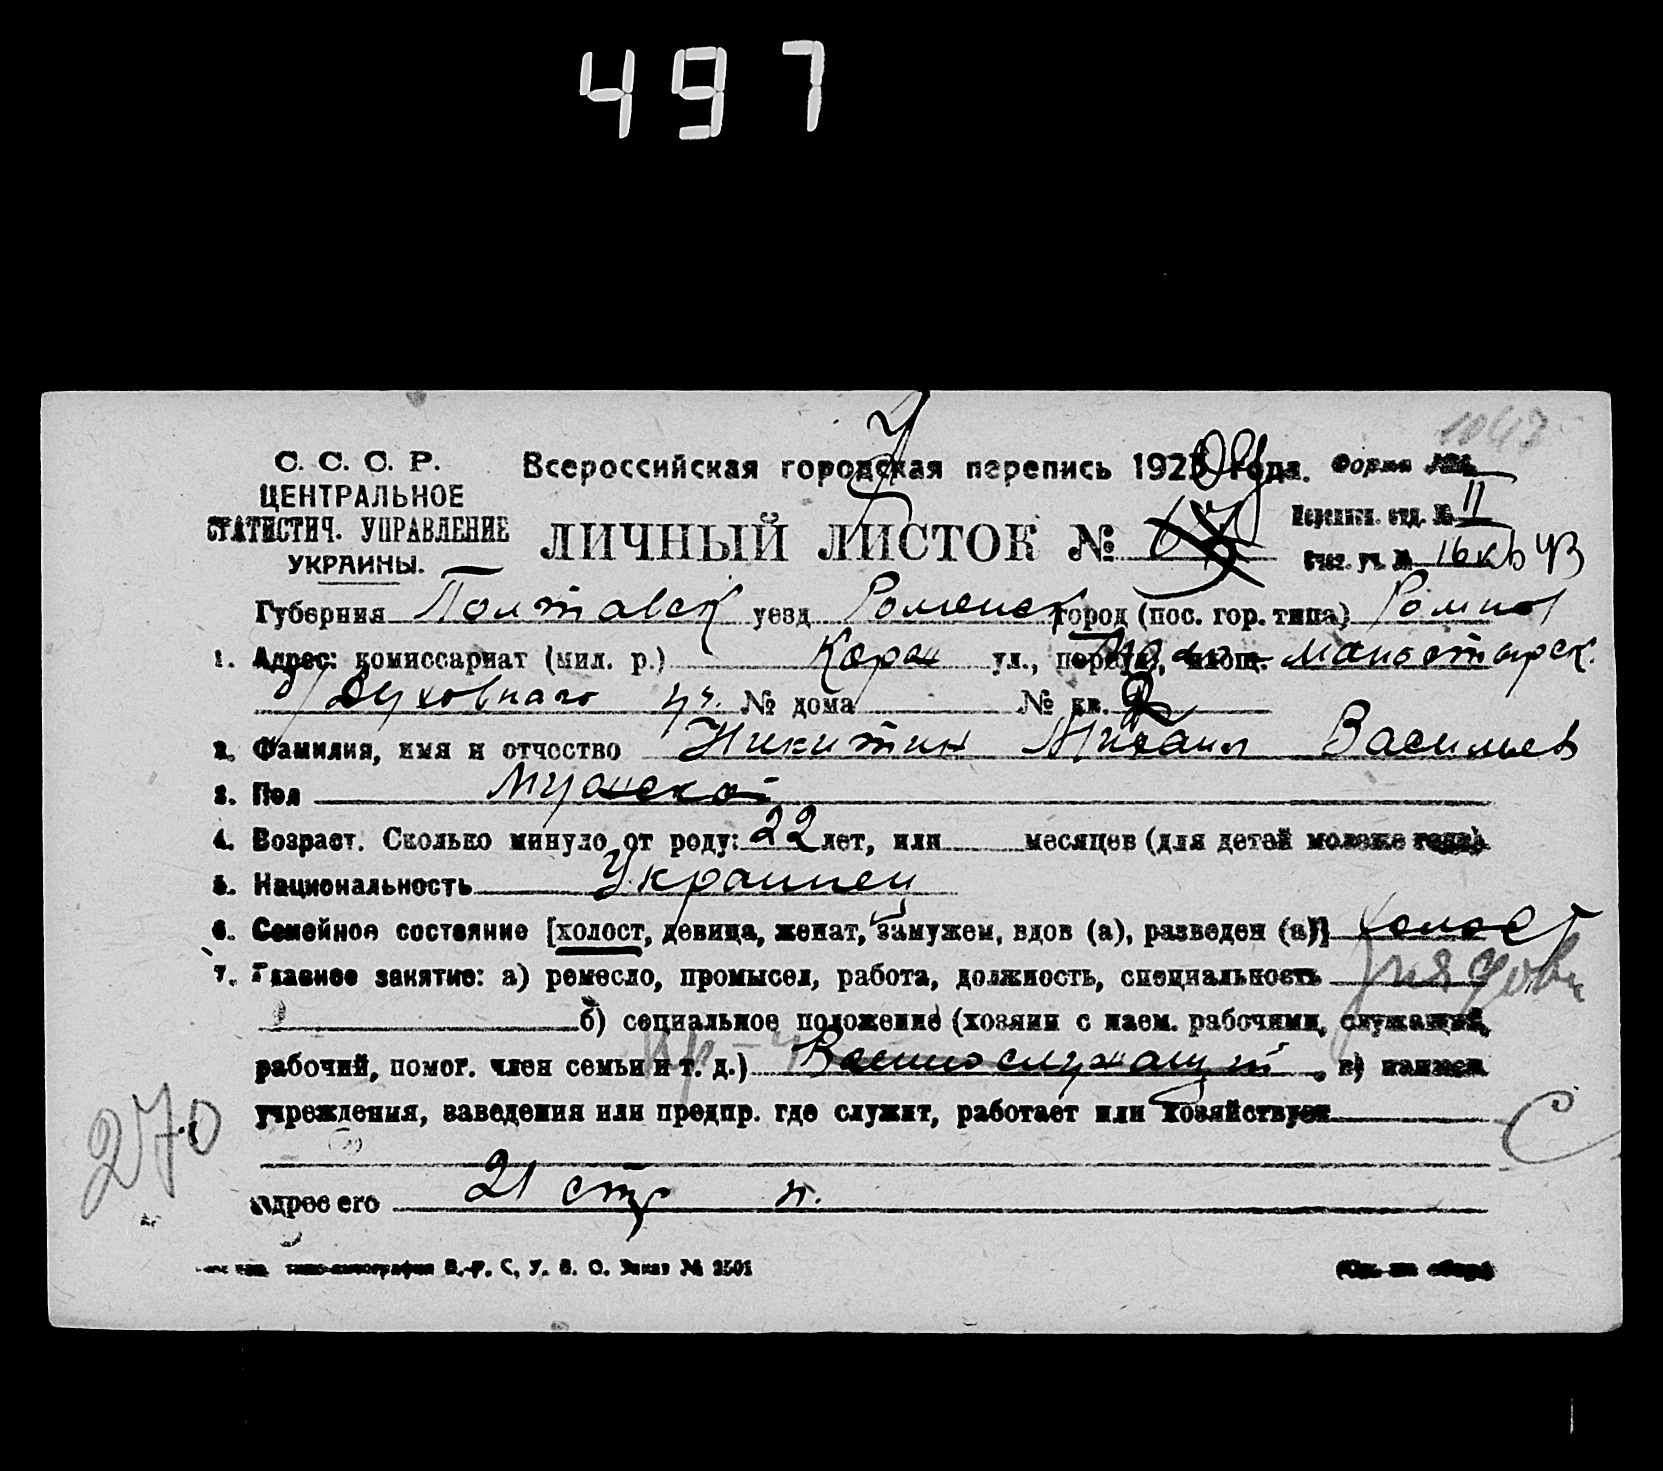 497
С. С. С. Р.
ЦЕНТРАЛЬНОЕ
СТАТИСТИЧ. УПРАВЛЕНИЕ
УКРАИНЫ.
Всероссийская городская перепись 1923 года. Форма
ЛИЧНЫЙ ЛИСТОК №
Переписн. отд. № II
Счет. уч. № 16
Губерния Полтавск уезд Роменск город (пос. гор. типа) Ромны
1. Адрес: комиссариат (мил. р.) ул., переул., площ. Монастырск.
Духовного уч. № дома № кв.
2. Фамилия, имя и отчество Никитин Михаил Васильев
3. Пол Мужской
4. Возраст. Сколько минуло от роду: 22 лет, или месяцев (для детей моложе года)
5. Национальность Украинец
6. Семейное состояние [холост, девица, женат, замужем, вдов (а), разведен (а)] холост
7. Главное занятие: а) ремесло, промысел, работа, должность, специальность рядовой
б) социальное положение (хозяин с наем. рабочими, служащий,
рабочий, помог. член семьи и т. д.) Военнослужащий, в) наимен
учреждения, заведения или предпр. где служит, работает или хозяйствует
270
С
адрес его 21 стр п.
типо-литография В.-Р. С. У. В. О. Заказ № 2501